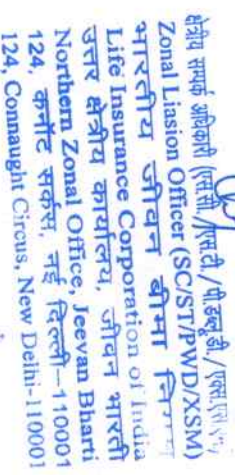 क्षेत्रीय सम्पर्क अधिकारी (एस.सी./एस.टी./पी.डब्लू.डी./एक्स.
Zonal Liasion Officer (SC/ST/PWD/XSM)
भारतीय जीवन बीमा निगम
Life Insurance Corporation of India
उत्तर क्षेत्रीय कार्यालय, जीवन भारती
Northern Zonal Office, Jeevan Bharti
124, कनॉट सर्कस, नई दिल्ली–110001
124, Connaught Circus, New Delhi-110001